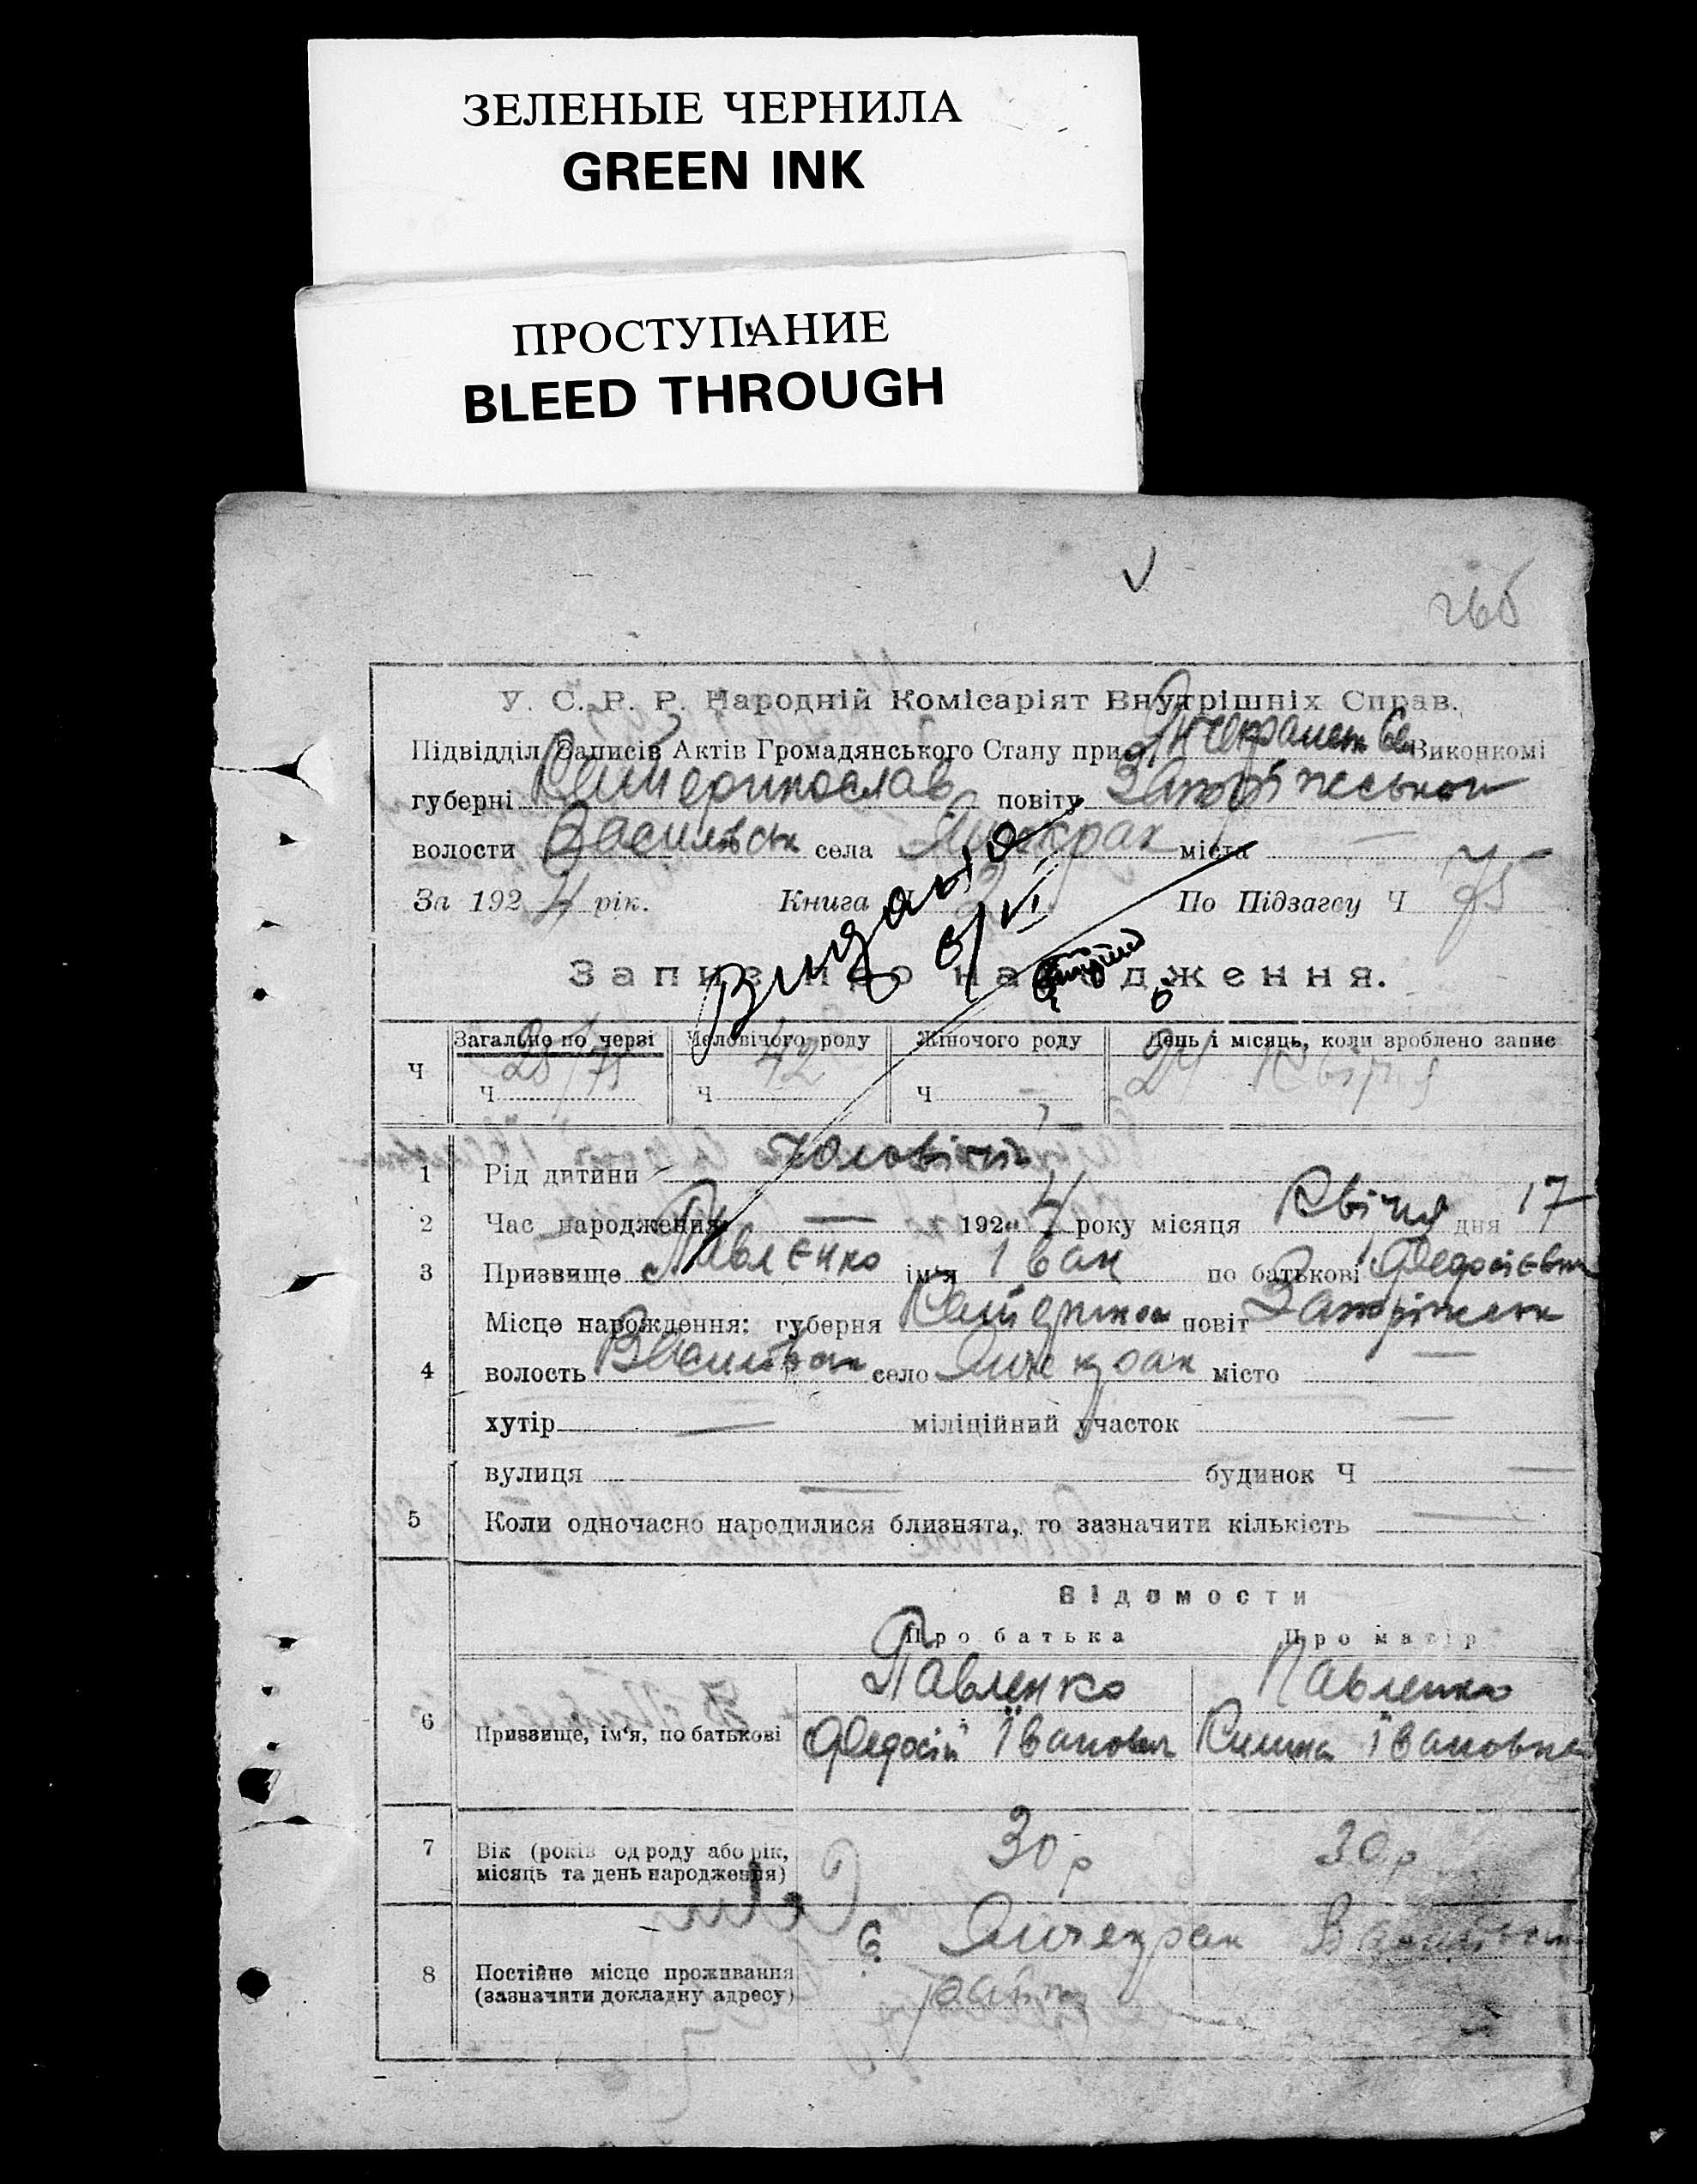 ЗЕЛЕНЫЕ ЧЕРНИЛА
GREEN INK
ПРОСТУПАНИЕ
BLEED THROUGH
У. С. Р. Р. Народній Комісаріят Внутрішніх Справ.
Підвідділ Записів Актів Громадянського Стану при Виконкомі
губерні Катеринослав повіту Запоріжської
волости Василівськ села Янчекрак міста —
За 1924 рік. Книга Ч 2 По Підзагсу Ч 75
Видано
Запис про народження.
Загально по черзі Чоловічого роду Жіночого роду День і місяць, коли зроблено запис
Ч Ч 28/75 Ч 42 Ч — 24 Квітня
1 Рід дитини Чоловічий
2 Час народження — 1924 року місяця Квітня дня 17
3 Призвище Павленко ім'я Іван по батькові Федосієвич
Місце народження: губерня Катеринос повіт Запоріжськ
4 волость Василівськ село Янчекрак місто —
хутір — міліційний участок —
вулиця — будинок Ч —
5 Коли одночасно народилися близнята, то зазначити кількість —
Відомости
Про батька Про матір
Павленко Павленко
6 Призвище, ім'я, по батькові Федосій Іванович Килина Івановна
7 Вік (років од роду або рік, місяць та день народження) 30 р 30 р
8 Постійне місце проживання (зазначити докладну адресу) с. Янчекрак Василівськ
району